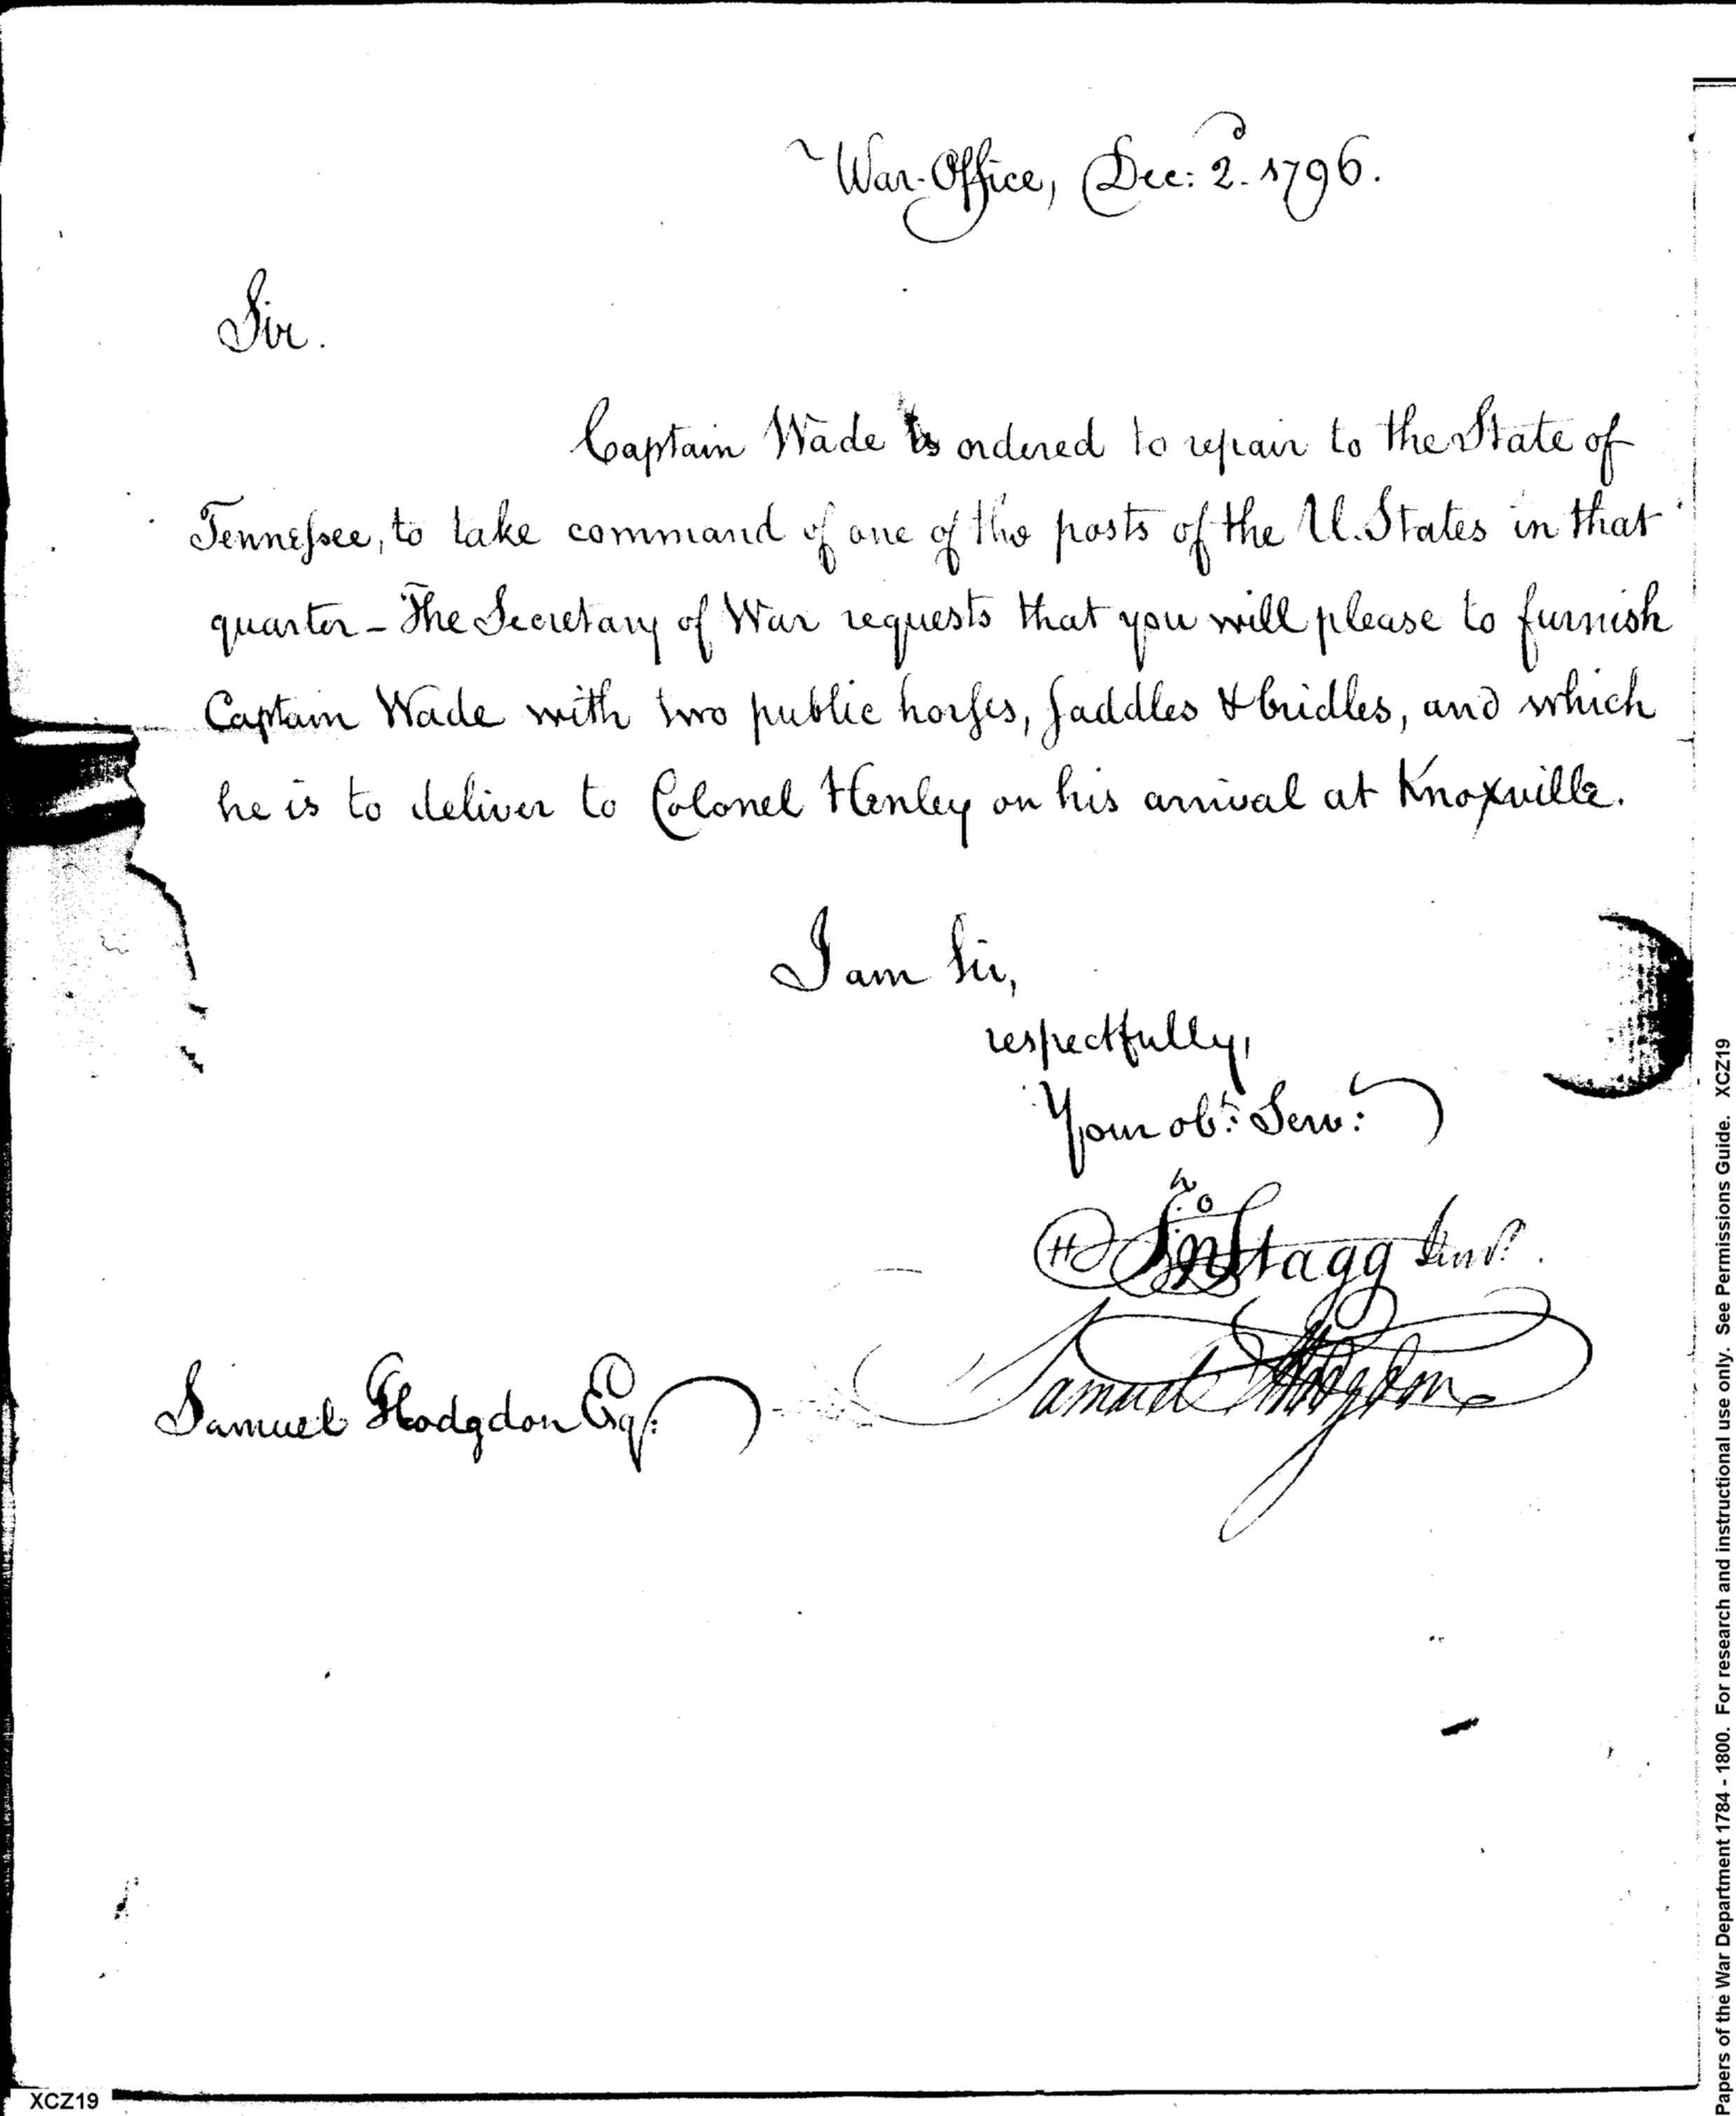 War-Office, Dec: 2d. 1796.
Sir.
Captain Wade is ordered to repair to the State of
Tenneſsee, to take command of one of the posts of the U. States in that
quarter – The Secretary of War requests that you will please to furnish
Captain Wade with two public horſes, ſaddles & bridles, and which
he is to deliver to Colonel Henley on his arrival at Knoxville.
I am Sir,
respectfully,
Your obt: Serv:
Jno Stagg Junr.
Samuel Hodgdon
Samuel Hodgdon Esq:
XCZ19
Papers of the War Department 1784 - 1800. For research and instructional use only. See Permissions Guide. XCZ19